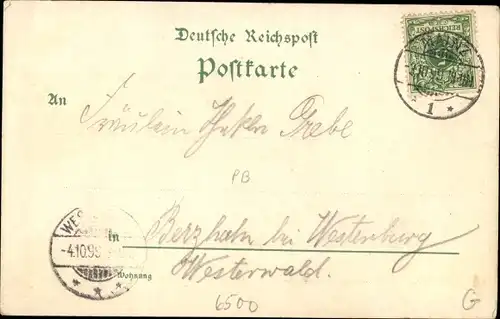 Deutsche Reichspost
Postkarte
REICHSPOST
MAINZ
1 * *
An
Fräulein Grebe
PB
in Berzhahn bei Westerburg
WES
-4.10.99
* * *
Wohnung
Westerwald.
6500
G